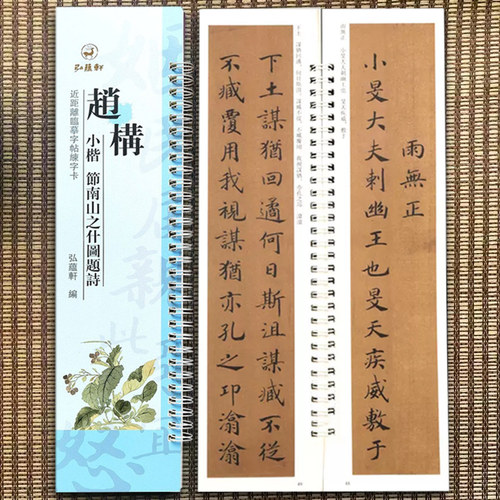 弘蘊軒
趙構
小楷 節南山之什圖題詩
近距離臨摹字帖練字卡
弘蘊軒 編
雨無正
小旻大夫刺幽王也旻天疾威敷于
下土謀猶回遹何日斯沮謀臧不從
不臧覆用我視謀猶亦孔之卭潝潝